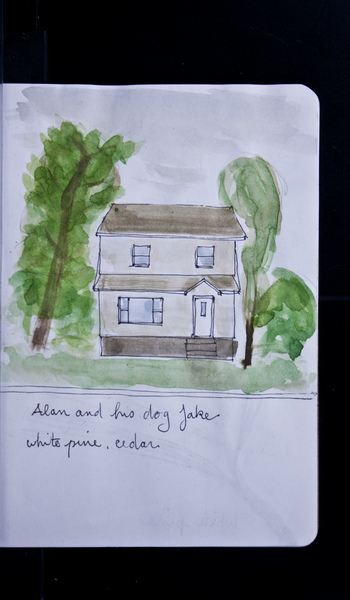 Alan and his dog Jake
white pine, cedar